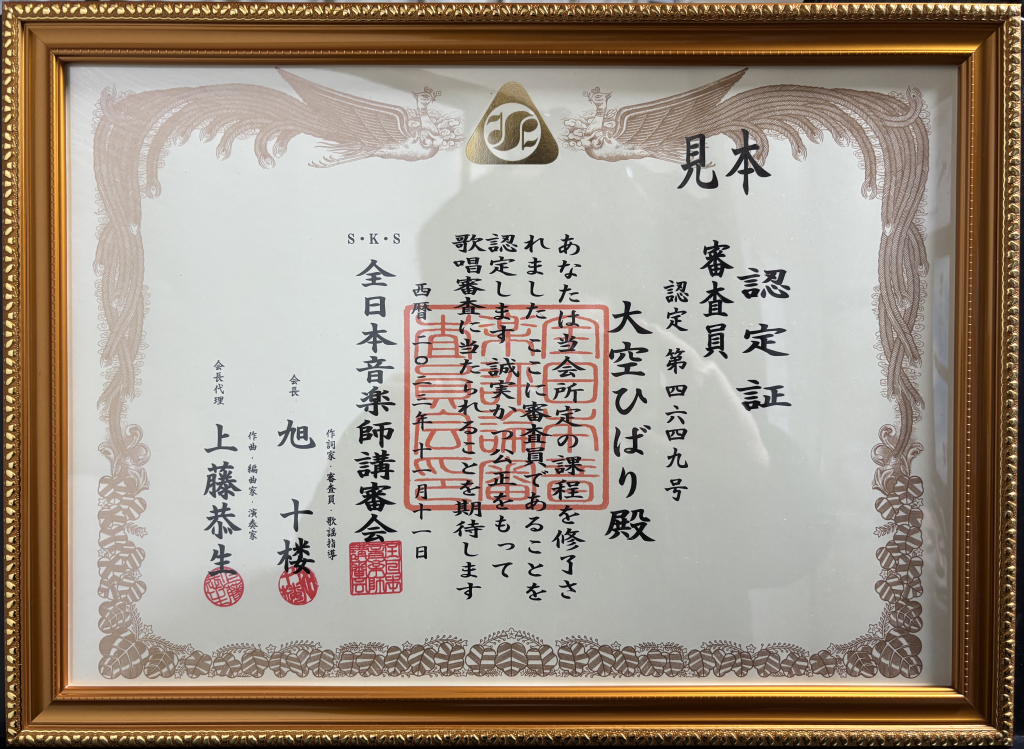 見本
認定証
審査員
認定 第四六四九号
大空ひばり殿
あなたは当会所定の課程を修了さ
れました ここに審査員であることを
認定します 誠実かつ公正をもって
歌唱審査に当たられることを期待します
西暦二〇二二年十一月十一日
S・K・S
全日本音楽師講審会
作詞家・審査員・歌謡指導
会長 旭 十楼
作曲・編曲家・演奏家
会長代理 上藤恭生